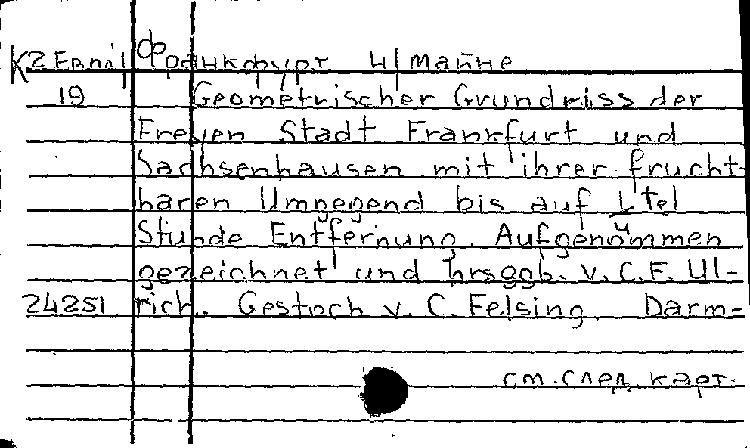 К2 Европ Франкфурт н/Майне
19 Geometrischer Grundriss der
Freyen Stadt Frankfurt und
Sachsenhausen mit ihrer frucht-
baren Umgegend bis auf 1/4tel
Stunde Entfernung. Aufgenommen
gezeichnet und hrsggb. v. C.F. Ul-
24251 rich. Gestoch v. C. Felsing. Darm-
см. след. карт.